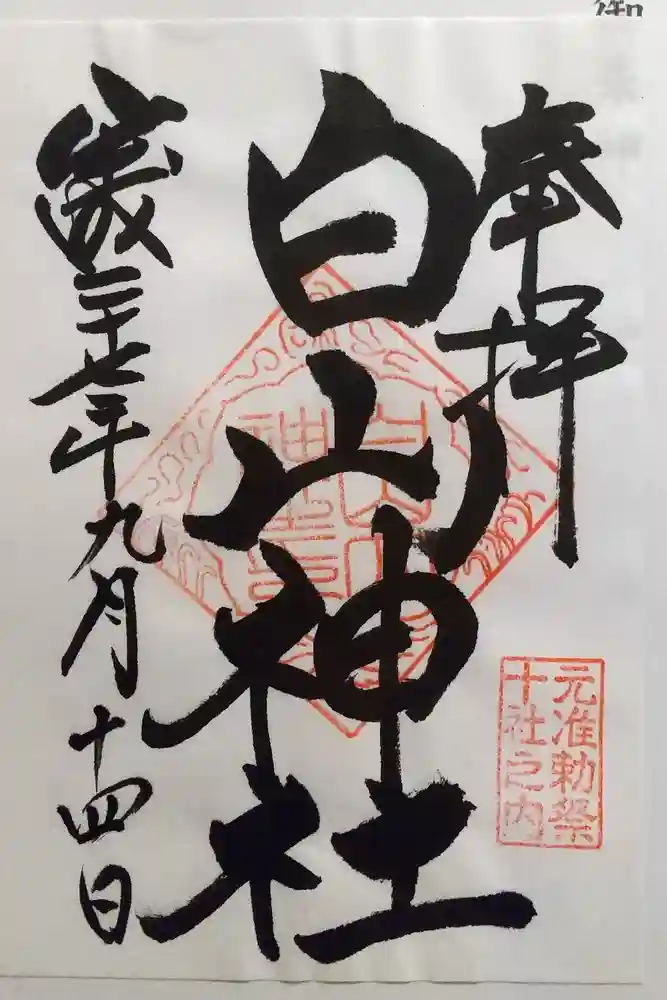 奉拝
白山神社
歳二十七年九月十四日
元准勅祭
十社之内